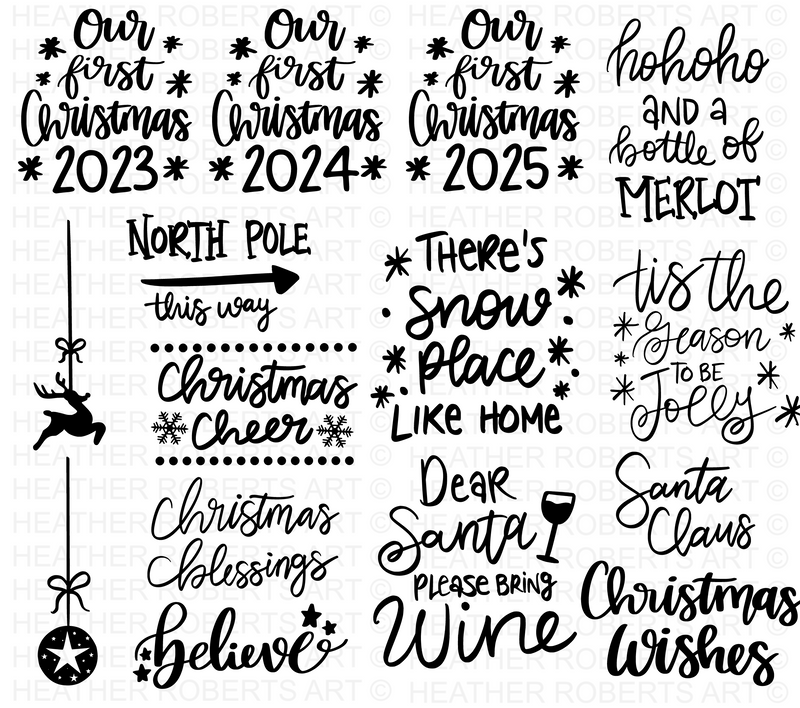 Our
first
Christmas
2023
Our
first
Christmas
2024
Our
first
Christmas
2025
hohoho
AND a
bottle of
MERLOT
NORTH POLE
this way
Christmas
Cheer
THERE'S
snow
place
LIKE HOME
'tis the
Season
TO BE
Jolly
Christmas
blessings
believe
DEAR
Santa
PLEASE BRING
Wine
Santa
Claus
Christmas
Wishes
HEATHER ROBERTS ART ©